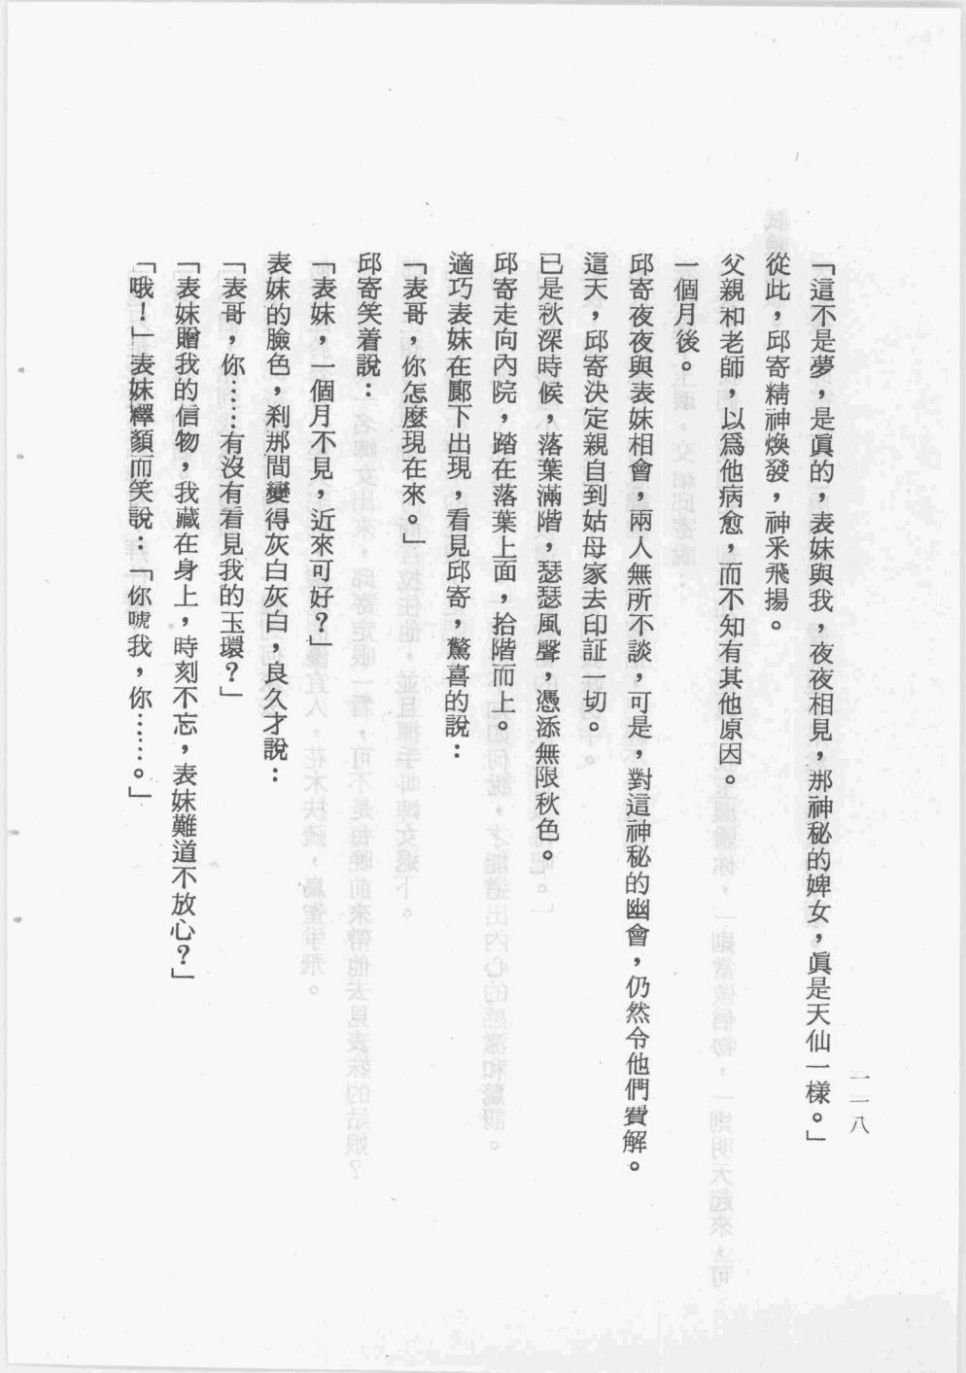 「這不是夢，是眞的，表妹與我，夜夜相見，那神秘的婢女，眞是天仙一樣。」
從此，邱寄精神煥發，神釆飛揚。
父親和老師，以爲他病愈，而不知有其他原因。
一個月後。
邱寄夜夜與表妹相會，兩人無所不談，可是，對這神秘的幽會，仍然令他們費解。
這天，邱寄決定親自到姑母家去印証一切。
已是秋深時候，落葉滿階，瑟瑟風聲，憑添無限秋色。
邱寄走向內院，踏在落葉上面，拾階而上。
適巧表妹在廊下出現，看見邱寄，驚喜的說：
「表哥，你怎麼現在來。」
邱寄笑着說：
「表妹，一個月不見，近來可好？」
表妹的臉色，刹那間變得灰白灰白，良久才說：
「表哥，你……有沒有看見我的玉環？」
「表妹贈我的信物，我藏在身上，時刻不忘，表妹難道不放心？」
「哦！」表妹釋顏而笑說：「你唬我，你……。」
一一八